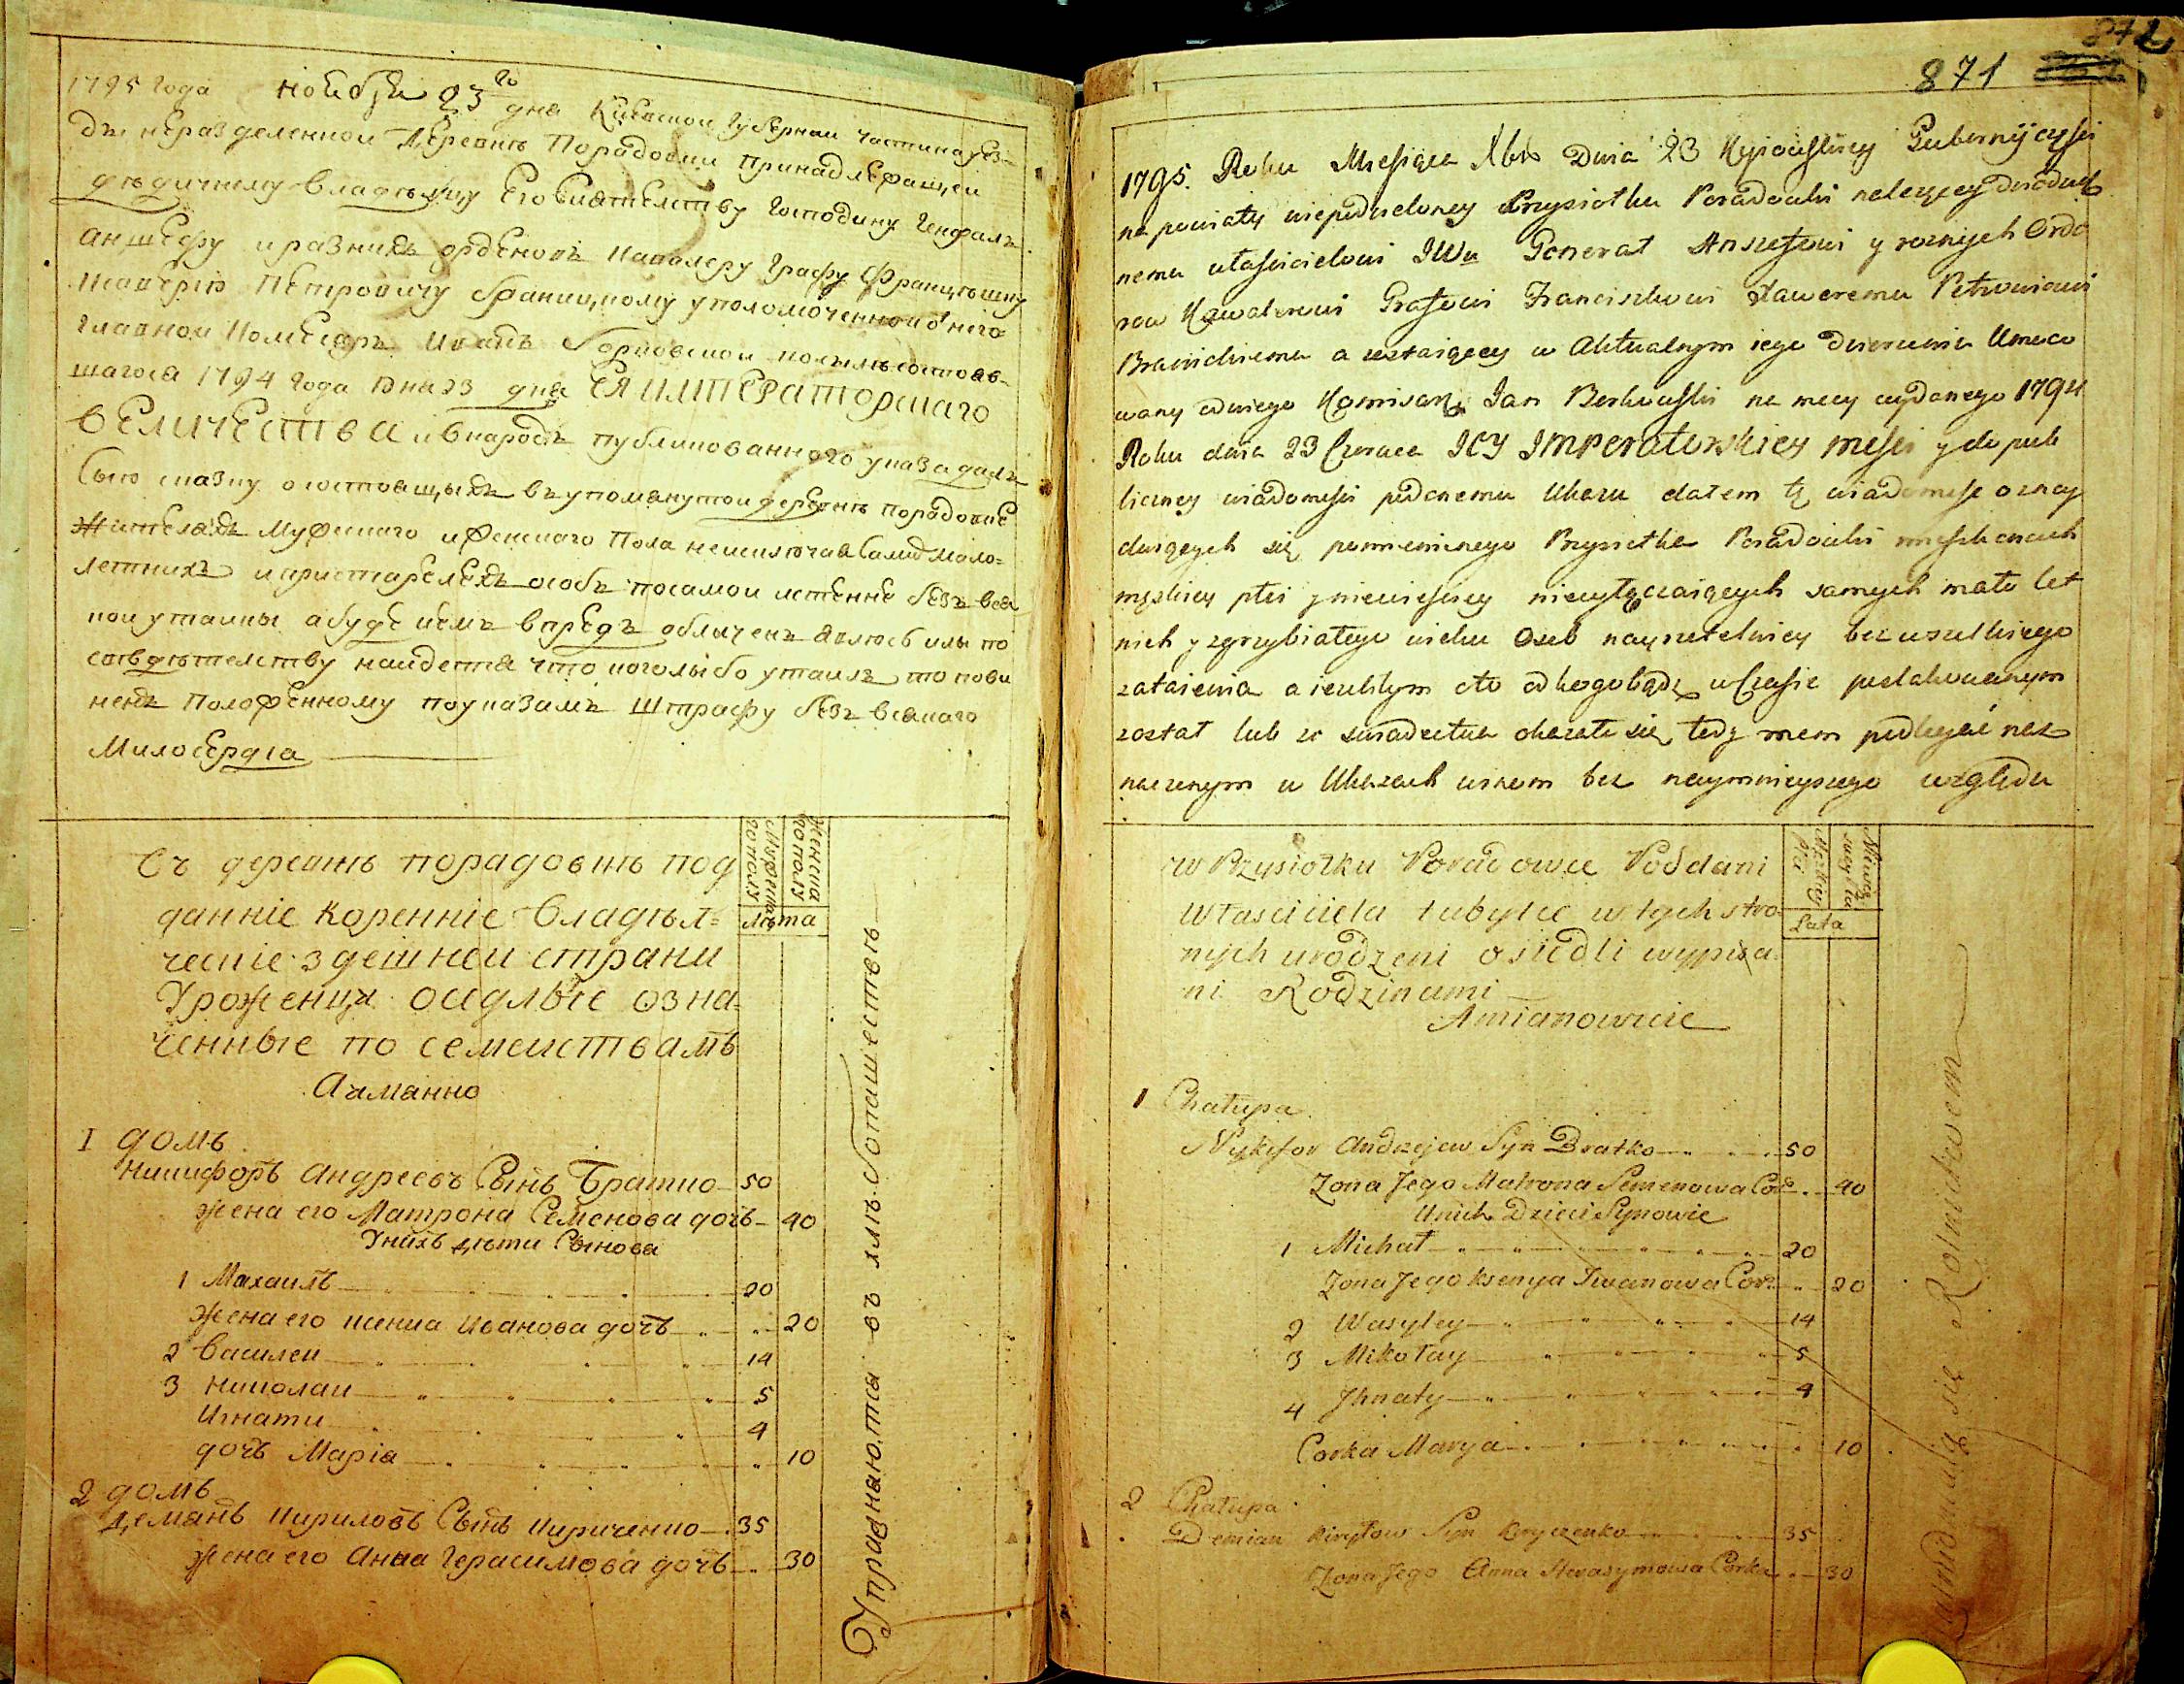 1795 года ноября 23го дня Киевской губернии частина уез-
ды неразделенной деревнѣ Порадовки принадлежащей
дѣдичному владѣлцу его сиятелству господину генералъ
аншефу и разнихъ орденовъ кавалеру графу Францѣшку
Ксаверию Петровичу Браницкому уполомоченной от него
главной комисаръ Иванъ Борковской по силѣ состояв-
шагося 1794 года Июна 23 дня ЕЯ ИМПЕРАТОРСКАГО
ВЕЛИЧЕСТВА и в народъ публикованного указа далъ
сыю сказку о состоящыхъ въ упомянутой деревнѣ Порадовке
жителяхъ мужеского и женского пола неисключая самих мало-
летнихъ и пристарелехъ особъ по самой истенне безъ вся
кой утайки а буде кемъ впредъ обличенъ явлюсь или по
свѣдѣтелству найдется что кого лыбо утаилъ то пови
ненъ положенному по указамъ штрафу безъ всякаго
милосердїа
Въ деревнѣ порадовкѣ под
данніе коренніе владѣл-
ческіе здешней страни
Уроженци оседлые озна-
ченные по семействамъ
Ачманно
Мужеска полу
Женска полу
лѣта
1 домъ
Никифоръ Андреевъ Сынъ Братко 50
жена его Матрона Семенова дочъ 40
У нихъ дѣти Сынова
1 Михаилъ 20
жена его ксения Иванова дочъ 20
2 Василей 14
3 Николай 5
Игнати 4
дочъ Марїа 10
2 домъ
Демянъ Кириловъ Сынъ Кириченко 35
жена его Анна Герасимова дочъ 30
Упражнаются въ хлѣбопашествѣ
871
1795. Roku Miesiąca Xbra Dnia 23 Kyiowskiey Gubernij części
na powiaty niepodzieloney Przysiołka Poradowki należącey dziedicz
nemu własicielowi JWu Generał Anszefowi y roznych Orde
row Kawalerowi Grafowi Franciszkowi Xaweremu Petrowiczowi
Branickiemu a zostaiącey w Aktualnym iego dzierzeniu Umoco
wany od niego Komisarz Jan Borkowski na mocy wydanego 1794
Roku dnia 23 Czerwca JEY IMPERATORSKIEY MCSci y do pub
liczney wiadomości podanemu Ukazu dałem tę wiadomość o znay
duiących się pomienionego Przysiołka Poradowki mieszkancach
męskiey płci y niewieściey niewyłączaiących samych mało let
nich y zgrzybiałego wieku Osob nayrzetelniey bez wszelkiego
zataienia a ieżelibym cto od kogobądz w Czasie poszlakowanym
został lub ze swiadectwa okazało się, tedy mam podlegać naz
naczonym w Ukazach winom bez naymnieyszego względu
w Przysiołku Poradowce Poddani
Własciciela tubylce w tych stro-
nych urodzeni osiedli wypisa-
ni Rodzinami
Amianowicie
Męskiey Płci
Niewiesciey Płci
Lata
1 Chałupa
Nykyfor Andrzejow Syn Bratko 50
Zona Jego Matrona Semenowa Cor. 40
U nich Dzieci Synowie
1 Michał 20
Zona Jego Ksenya Iwanowa Cor. 20
2 Wasyley 14
3 Mikołay 5
4 Jhnaty 4
Corka Marya 10
2 Chałupa
Demian Kiryłow Syn Kiryczenko 35
Zona Jego Anna Herasymowa Corka 30
Zatrudniaią się Rolnictwem